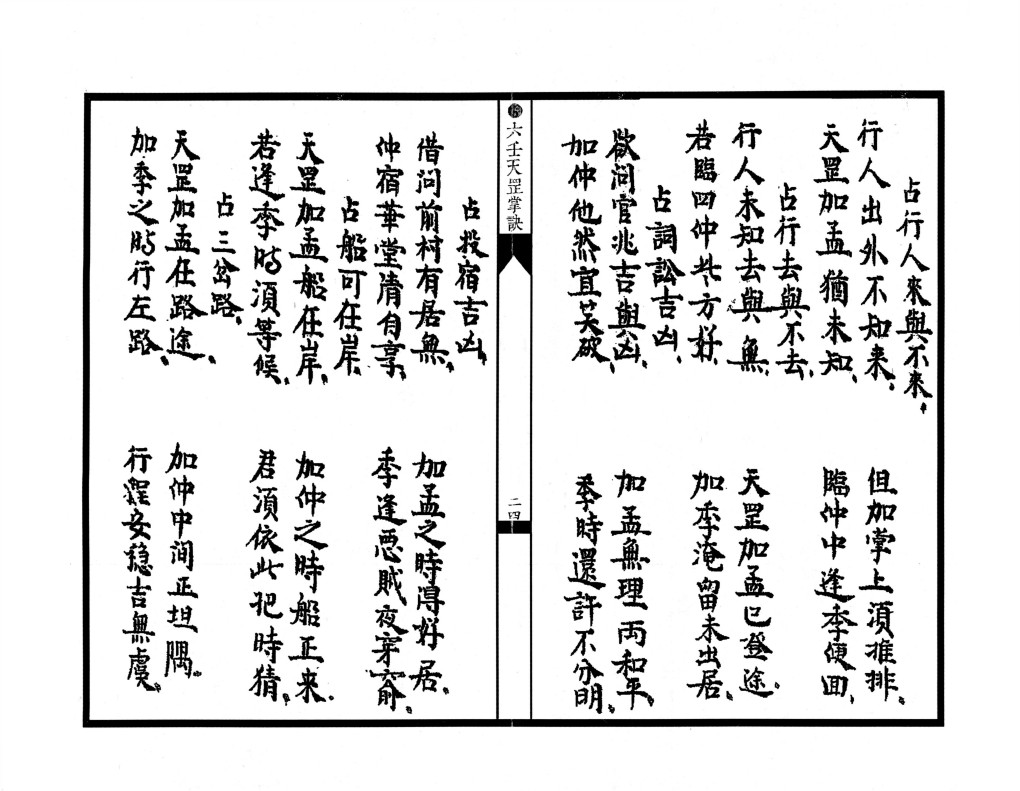 占行人來與不來
行人出外不知来 但加掌上須推排
天罡加孟猶未知 臨仲中逢季便回
占行去與不去
行人未知去與無 天罡加孟已登途
若臨四仲並方好 加季淹留未出居
占詞訟吉凶
欲问官兆吉與凶 加孟無理両和平
加仲他然宜笑破 季時還許不分明
六壬天罡掌訣
二四
占投宿吉凶
借问前村有居無 加孟之時得好居
仲宿華堂清自享 季逢惡賊夜穿窬
占船可在岸
天罡加孟船在岸 加仲之時船正来
若逢季時須等候 君須依此把時猜
占三岔路
天罡加孟任路途 加仲中间正坦隅
加季之時行左路 行程安穩吉無虞